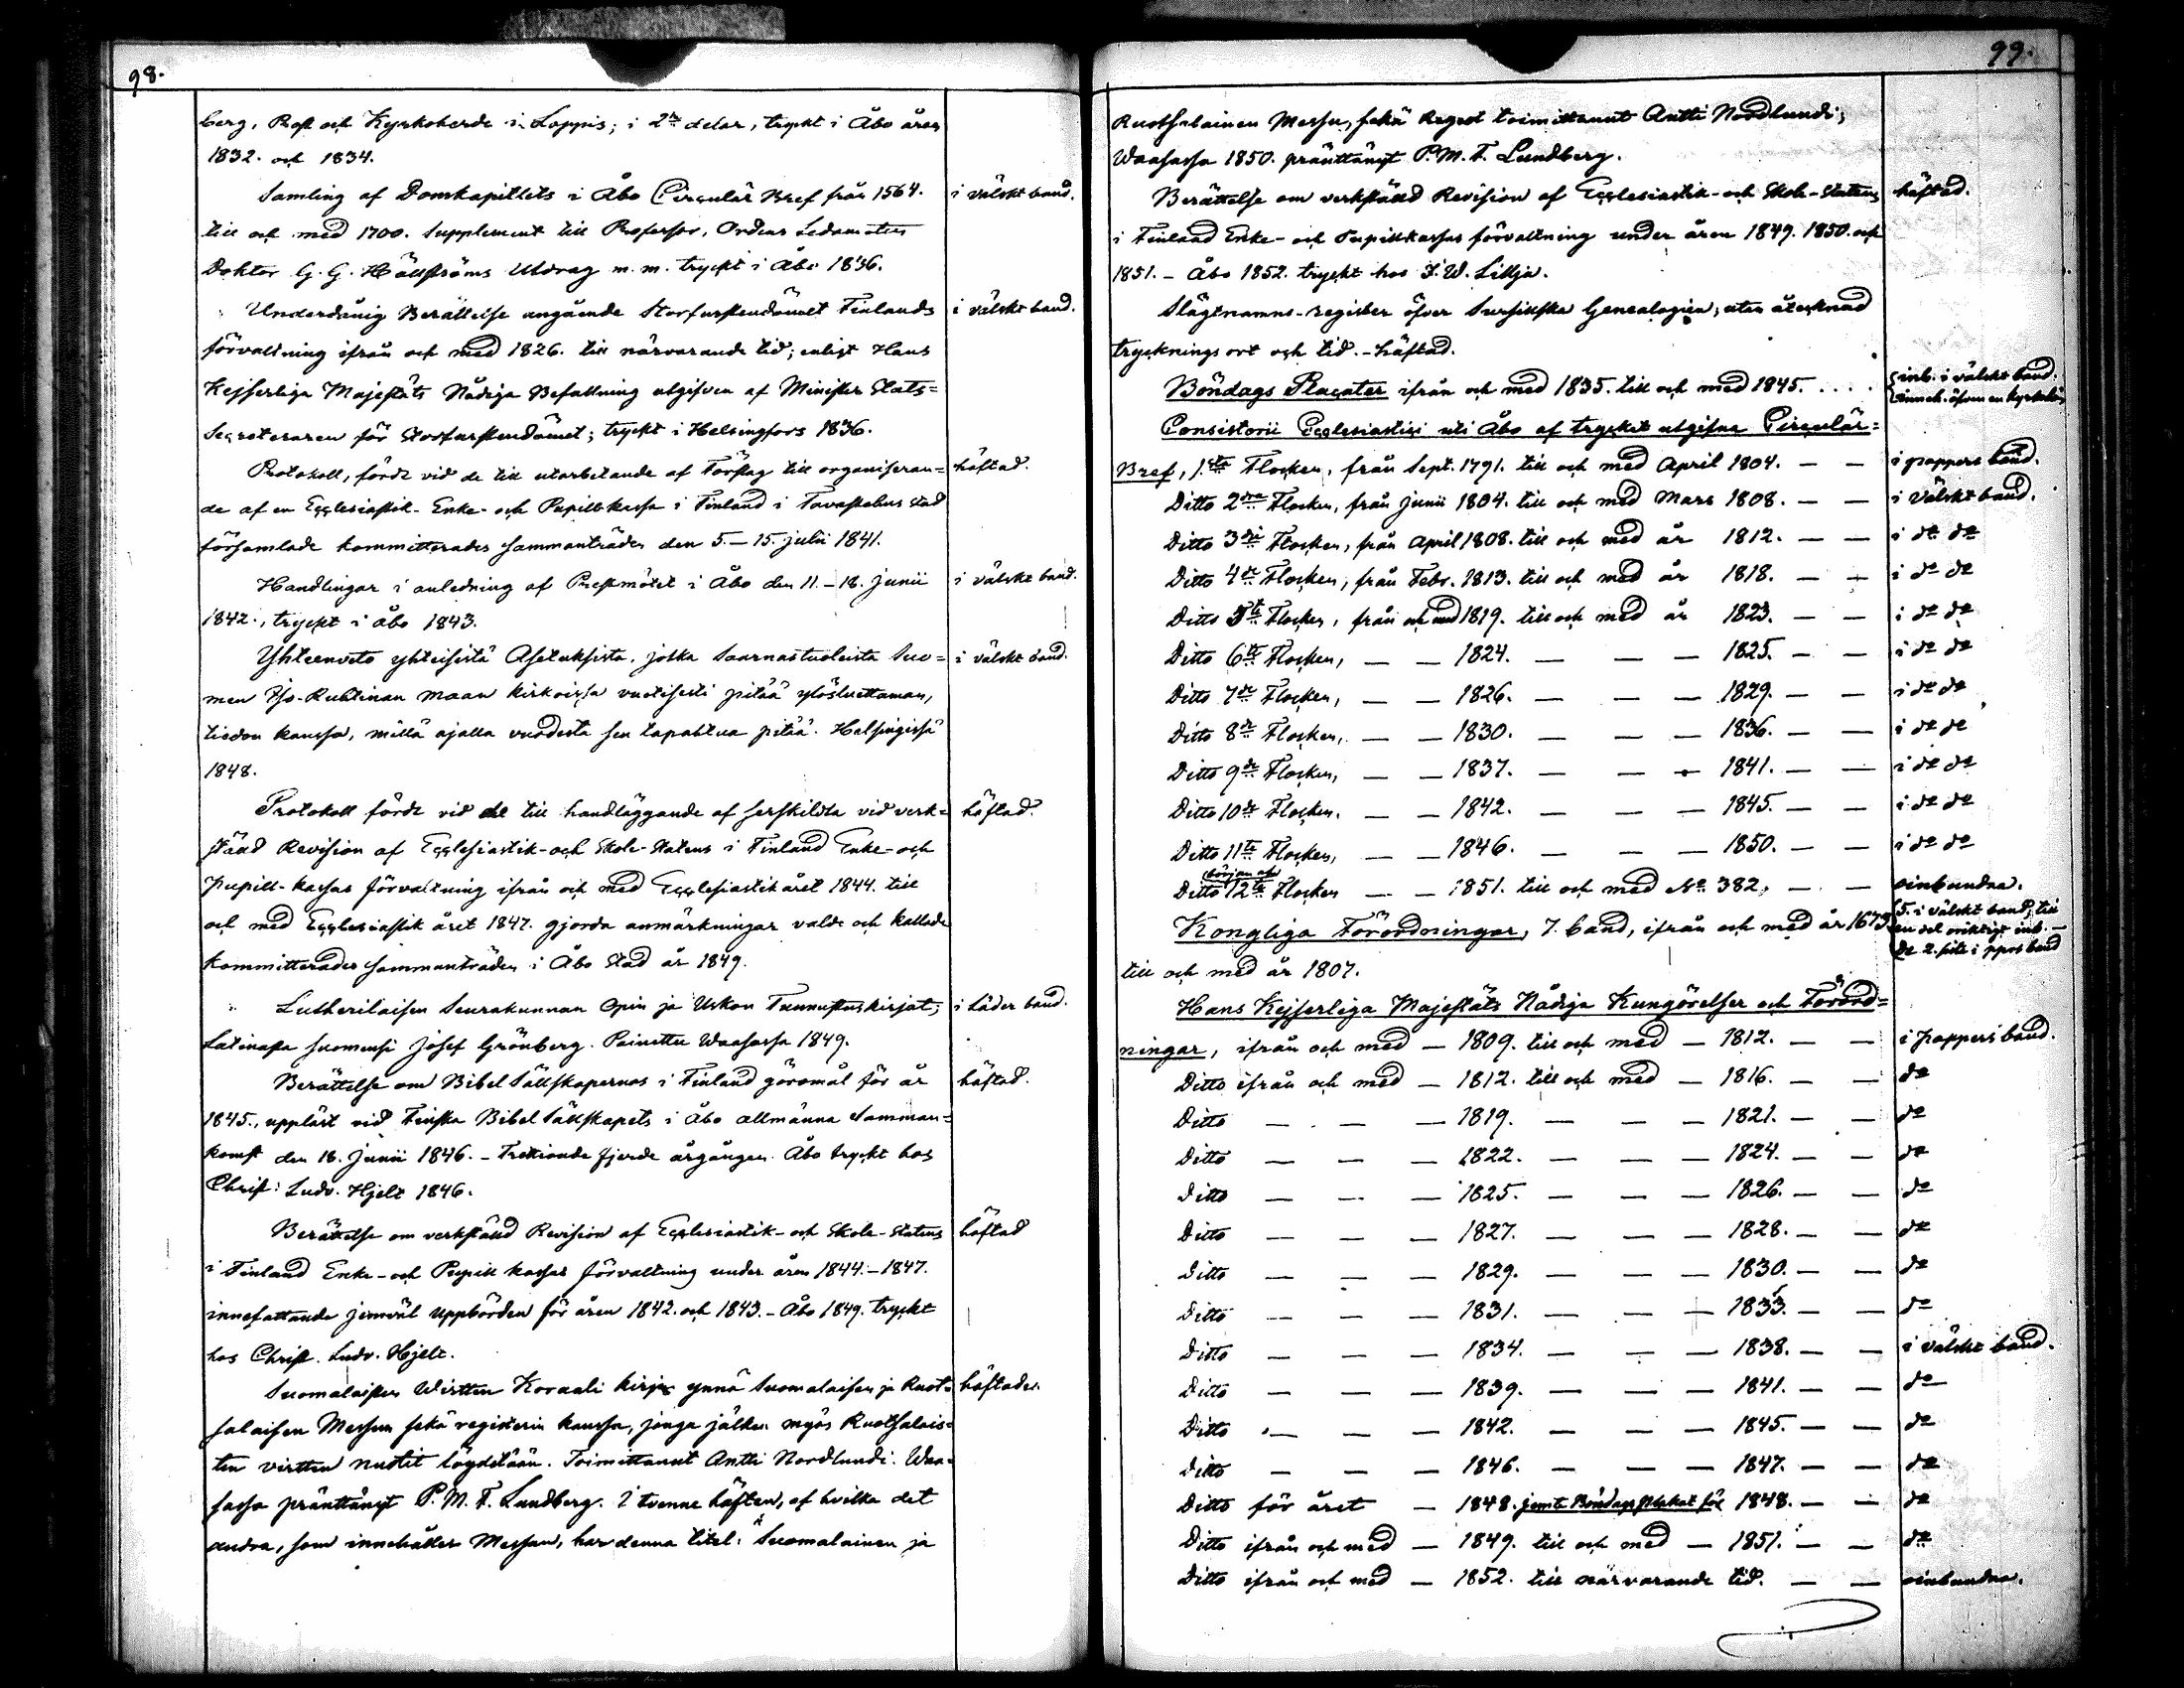 98.
berg, Prost och Kyrkoherde i Loppis; i 2ne delar, tryckt i Åbo åren
1832. och 1834.
Samling af Domkapitlets i Åbo Circulär Bref från 1564. i välskt band.
till och med 1700. Supplement till Professor, Ordens Ledamoten
Doktor G. G. Hällströms Utdrag m. m. tryckt i Åbo 1836.
Underdånig Berättelse angående Storfurstendömet Finlands i välskt band.
förvaltning ifrån och med 1826. till närvarande tid; enligt Hans
Kejserliga Majestäts Nådiga Befallning utgifven af Minister Stats=
Secreteraren för Storfurstendömet; tryckt i Helsingfors 1836.
Protokoll, fördt vid de till utarbetande af Förslag till organiseran= häftad.
de af en Ecclesiastik- Enke- och Pupillkassa i Finland i Tavastehus stad
församlade kommitterades sammanträder den 5.–15. julii 1841.
Handlingar i anledning af Prestmötet i Åbo den 11.–18. Junii i välskt band.
1842., tryckt i Åbo 1843.
Yhteenveto yhteisistä Asetuksista, jotka Saarnastuoleista Suo= i välskt band.
men Iso-Ruhtinan maan kirkoissa vuotisesti pitää ylösluettaman,
tiedon kanssa, millä ajalla vuodesta sen tapahtua pitää. Helsingissä
1848.
Protokoll fördt vid de till handläggande af serskildta vid verk= häftad.
städ Revision af Ecclesiastik- och Skole-Statens i Finland Enke- och
pupill-kassas förvaltning ifrån och med Ecclesiastikåret 1844. till
och med Ecclesiastik året 1847. gjorda anmärkningar valde och kallade
kommitterades sammanträden i Åbo Stad år 1849.
Lutherilaisen Seurakunnan Opin ja Uskon Tunnustuskirjat; i läder band.
Latinasta suomensi Josef Grönberg. Painettu Waasassa 1849.
Berättelse om Bibel Sällskapernas i Finland göromål för år häftad.
1845., uppläst vid Finska Bibel Sällskapets i Åbo allmänna Samman=
komst den 18. Junii 1846. – Trettionde fjerde årgången. Åbo tryckt hos
Christ: Ludv. Hjelt 1846.
Berättelse om verkställd Revision af Ecclesiastik- och Skole-Statens häftad
i Finland Enke- och Pupill kassas förvaltning under åren 1844.–1847.
innefattande jemväl uppbörden för åren 1842. och 1843. – Åbo 1849. tryckt
hos Christ. Ludv. Hjelt.
Suomalaisten Wirtten Koraali kirja ynnä Suomalaisen ja Ruot= häftader.
salaisen Messun sekä registerin kanssa, jonga jälken myös Ruotsalais=
ten virtten nuotit löydetään. Toimittanut Antti Nordlundi. Waa=
sassa pränttänyt P. M. F. Lundberg. I tvenne häften, af hvilka det
andra, som innehåller Messan, har denna titel: Suomalainen ja
99.
Ruotsalainen Messu, sekä toimittanut Antti Nordlundi;
Waasassa 1850. pränttänyt P. M. F. Lundberg.
Berättelse om verkställd Revision af Ecclesiastik- och Skole-Statens häftad.
i Finland Enke- och Pupillkassas förvaltning under åren 1849. 1850. och
1851. – Åbo 1852. tryckt hos J. W. Lillja.
Slägtnamns-register öfver Sursillska Genealogien, utan
trycknings ort och tid. – häftad.
Böndags Placater ifrån och med 1835. till och med 1845. . . . . inb. i välskt band.
Consistorii Ecclesiastici uti Åbo af trycket utgifna Circulär=
Bref, 1sta Flocken, från Sept. 1791. till och med April 1804. — — i pappers band.
Ditto 2dra Flocken, från Junii 1804. till och med Mars 1808. — — i välskt band.
Ditto 3dje Flocken, från April 1808. till och med år 1812. — — i do do
Ditto 4de Flocken, från Febr. 1813. till och med år 1818. — — i do do
Ditto 5te Flocken, från och med 1819. till och med år 1823. — — i do do
Ditto 6te Flocken, — — 1824. — — — 1825. — — i do do
Ditto 7de Flocken, — — 1826. — — — 1829. — — i do do
Ditto 8de Flocken, — — 1830. — — — 1836. — — i do do
Ditto 9de Flocken, — — 1837. — — — 1841. — — i do do
Ditto 10de Flocken. — — 1842. — — — 1845. — — i do do
Ditto 11te Flocken, — — 1846. — — — 1850. — — i do do
början af
Ditto 12te Flocken — — 1851. till och med No 382, — — oinbundna.
Kongliga Förordningar, 7. band, ifrån och med år 1673 5. i välskt band, till
en del oriktigt inb. —
till och med år 1807.
Hans Kejserliga Majestäts Nådiga Kungörelser och Förord=
ningar, ifrån och med — 1809. till och med — 1812. — — i pappers band.
Ditto ifrån och med — 1812. till och med — 1816. — — do
Ditto — — — 1819. — — — 1821. — — do
Ditto — — — 1822. — — — 1824. — — do
Ditto — — — 1825. — — — 1826. — — do
Ditto — — — 1827. — — — 1828. — — do
Ditto — — — 1829. — — — 1830. — — do
Ditto — — — 1831. — — — 1833. — — do
Ditto — — — 1834. — — — 1838. — — i välskt band.
Ditto — — — 1839. — — — 1841. — — do
Ditto — — — 1842. — — — 1845. — — do
Ditto — — — 1846. — — — 1847. — — do
Ditto för året — 1848. jemte Böndags plakat för 1848. — — do
Ditto ifrån och med — 1849. till och med — 1851. — — do
Ditto ifrån och med — 1852. till närvarande tid. — — oinbundna.